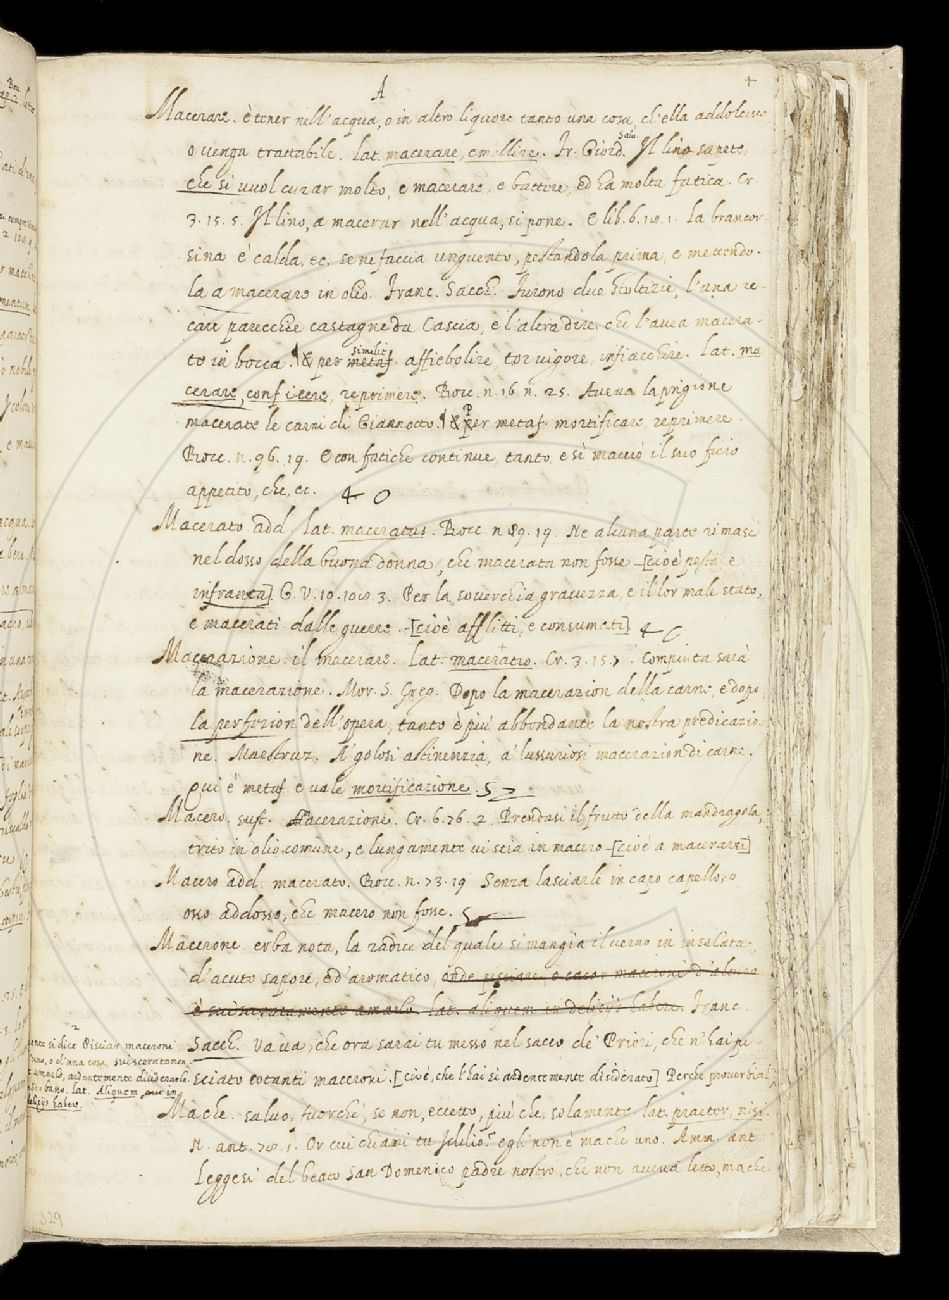 A
Macerare. è tener nell'acqua, o in altro liquore tanto una cosa, ch'ella addolcisca
o venga trattabile. Lat. macerare, emollire. Fr. Giord. Salv. Il lino sapete,
che si vuol curar molto, e macerare, e battere, ed ha molta fatica. Cr.
3. 15. 5. Il lino, a macerar nell'acqua, si pone. E lib. 6. 10. 1. La brancor-
sina è calda, ec. se ne faccia unguento, pestandola prima, e mettendo-
la a macerare in olio. Franc. Sacch. Furono due stoltizie, l'una re-
care parecchie castagne da Cascia, e l'altra dire, che l'avea macera-
to in bocca. § & per metaf. similit. affiebolire, tor vigore, infiacchire. Lat. ma-
cerare, conficere, reprimere. Bocc. n. 16. n. 25. Aveva la prigione
macerate le carni di Giannotto. § & Per metaf. mortificare, reprimere
Bocc. n. 96. 19. E con fatiche continue, tanto, e sì macerò il suo ficro
appetito, che, ec.
Macerato add. Lat. maceratus. Bocc. n. 89. 19. Ne alcuna parte rimase
nel dosso della buona donna, che macerata non fosse [cioè pesta, e
infranta] G. V. 10. 3. Per la soverchia gravezza, e il lor male stato,
e macerati dalle guerre. [cioè afflitti, e consumati]
Macerazione. il macerare. Lat. maceratio. Cr. 3. 15. 7. Compiuta sarà
la macerazione. Mor. S. Greg. Dopo la macerazion della carne, e dopo
la perfezion dell'opera, tanto è più abbondante la nostra predicazio-
ne. Maestruz. A' golosi astinenzia, a' lussuriosi macerazion di carne.
Qui è metaf. e vale mortificazione.
Macero. sust. Macerazione. Cr. 6. 76. 2. Prendasi il frutto della mandragola,
trito in olio comune, e lungamente vi stia in macero [cioè a macerarsi]
Macero add. macerato. Bocc. n. 73. 19 Senza lasciarle in capo capello, o
osso addosso, che macero non fosse.
Macerone. erba nota, la radice del quale si mangia il verno in insalata
d'acuto sapore, ed aromatico, onde pisciare, o cacar maceroni d'alcuno
è sviscerotamente amarlo. lat. aliquem in delicijs habere. Franc.
Sacch. Va via, che ora sarai tu messo nel sacco de' Priori, che n'hai pi-
sciato cotanti maceroni. [cioè, che l'hai sì ardentemente disiderato] Perchè proverbial-
mente si dice Pisciar maceroni
d'uno, o d'una cosa, svisceratamen-
te amarlo, ardentemente disiderarla.
modo basso. Lat. Aliquem in
delicijs habere.
Mache. salvo, fuorchè, se non, eccetto, più che, solamente. lat. praeter, nisi.
N. ant. 70. 1. Or cui chiami tu Iddio? egli non è mache uno. Amm. ant.
Leggesi del beato San Domenico padre nostro, che non aveva letto, mache
329